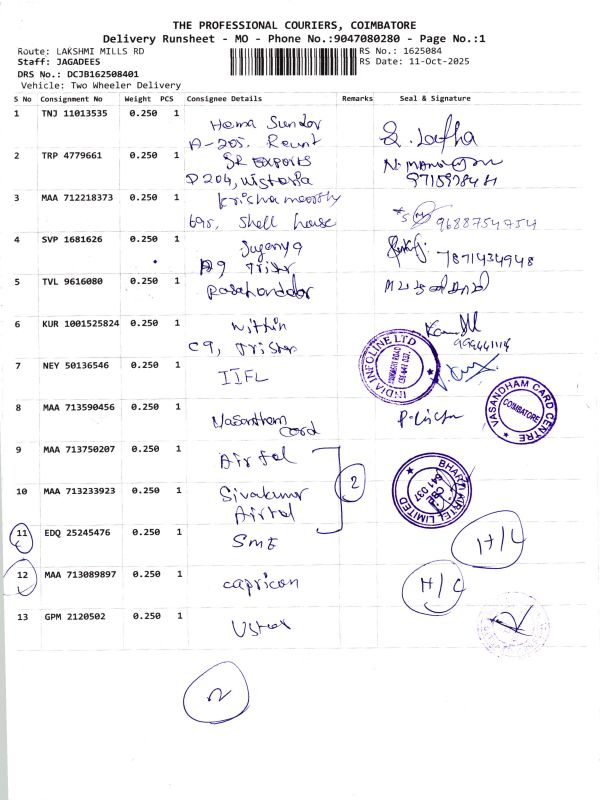 THE PROFESSIONAL COURIERS, COIMBATORE
Delivery Runsheet - MO - Phone No.:9047080280 - Page No.:1
Route: LAKSHMI MILLS RD
RS No.: 1625084
Staff: JAGADEES
RS Date: 11-Oct-2025
DRS No.: DCJB162508401
Vehicle: Two Wheeler Delivery
S No Consignment No Weight PCS Consignee Details Remarks Seal & Signature
1 TNJ 11013535 0.250 1 Hema Sundar
A-205.
2 TRP 4779661 0.250 1 SR Exports
D204,
3 MAA 712218373 0.250 1 Krishnamoorthy
Shell house
9688754754
4 SVP 1681626 0.250 1 Suganya
A9
7871434948
5 TVL 9616080 0.250 1
6 KUR 1001525824 0.250 1 Nithin
C9,
INDIA INFOLINE LTD
7 NEY 50136546 0.250 1 IIFL
8 MAA 713590456 0.250 1 Vasantham
Card
VASANDHAM CARD CENTRE
COIMBATORE
9 MAA 713750207 0.250 1 Airtel
2
10 MAA 713233923 0.250 1 Sivakumar
Airtel
BHARTI AIRTEL LIMITED
CBE
641 037
11 EDQ 25245476 0.250 1 SME
H/C
12 MAA 713089897 0.250 1 capricon
H/C
13 GPM 2120502 0.250 1
2